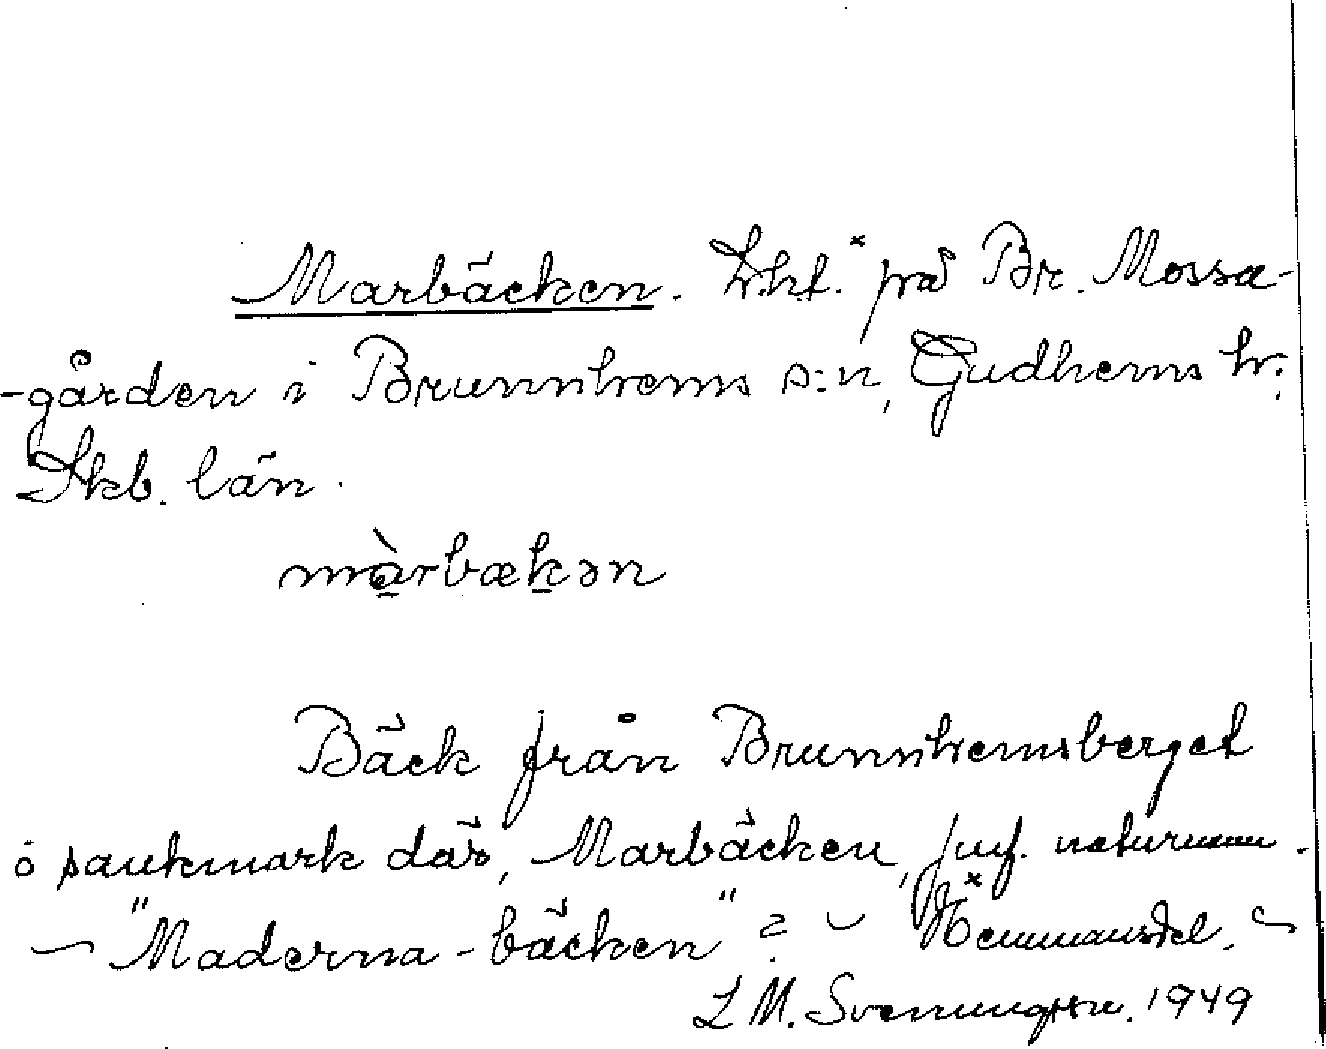 Marbäcken. Lht.ˣ på Br. Mossa-
-gården i Brunnhems s:n, Gudhems hr;
Skb. län.
màrbækən
Bäck från Brunnhemsberget
o sankmark där, Marbäcken, jmf. naturnamn.
— "Maderna-bäcken" ? — ˣ
L M. Svenungsson. 1949